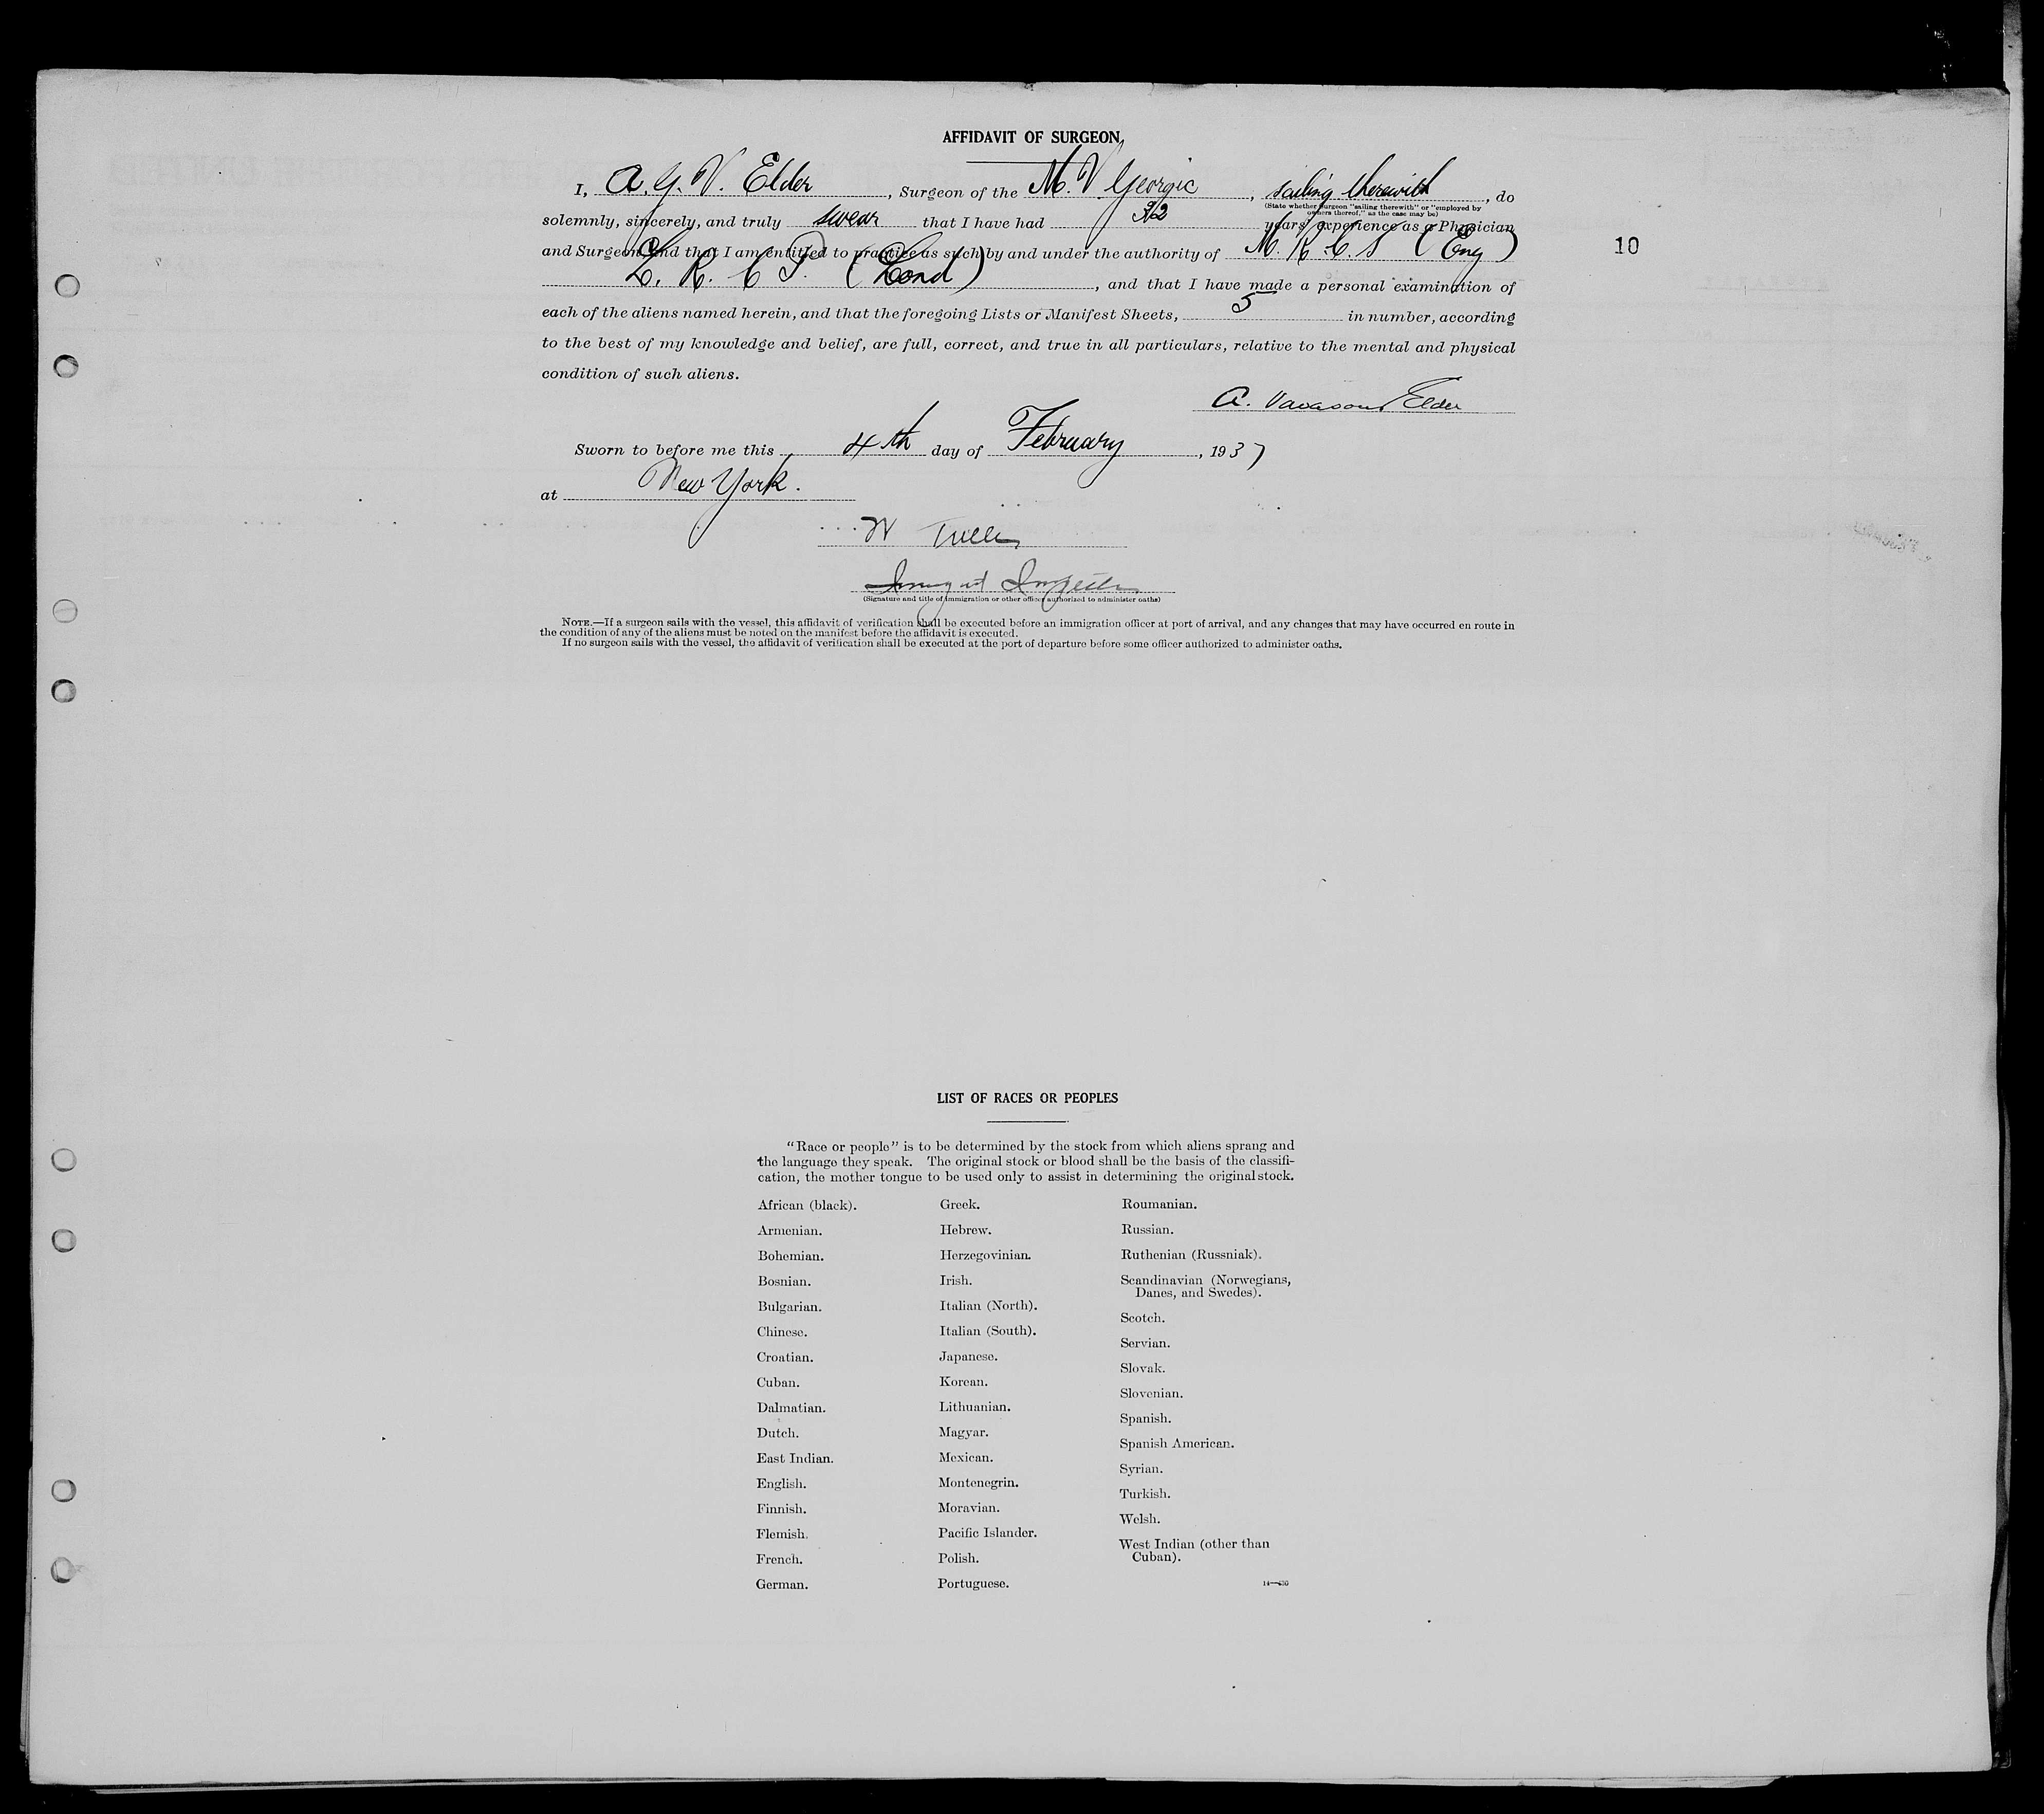 AFFIDAVIT OF SURGEON
I, A. G. V. Elder, Surgeon of the M. V Georgic, sailing therewith, do
(State whether surgeon "sailing therewith" or "employed by
owners thereof," as the case may be)
solemnly, sincerely, and truly swear that I have had 32 years' experience as a Physician
and Surgeon and that I am entitled to practice as such by and under the authority of M. R. C. S (Eng)
10
L. R. C P. (Lond), and that I have made a personal examination of
each of the aliens named herein, and that the foregoing Lists or Manifest Sheets, 5 in number, according
to the best of my knowledge and belief, are full, correct, and true in all particulars, relative to the mental and physical
condition of such aliens.
A. Vavasour Elder
Sworn to before me this 4th day of February, 1937
at New York.
W
Immigrant Inspector
(Signature and title of immigration or other officer authorized to administer oaths)
NOTE.—If a surgeon sails with the vessel, this affidavit of verification shall be executed before an immigration officer at port of arrival, and any changes that may have occurred en route in
the condition of any of the aliens must be noted on the manifest before the affidavit is executed.
If no surgeon sails with the vessel, the affidavit of verification shall be executed at the port of departure before some officer authorized to administer oaths.
LIST OF RACES OR PEOPLES
"Race or people" is to be determined by the stock from which aliens sprang and
the language they speak. The original stock or blood shall be the basis of the classifi-
cation, the mother tongue to be used only to assist in determining the original stock.
African (black).
Armenian.
Bohemian.
Bosnian.
Bulgarian.
Chinese.
Croatian.
Cuban.
Dalmatian.
Dutch.
East Indian.
English.
Finnish.
Flemish.
French.
German.
Greek.
Hebrew.
Herzegovinian.
Irish.
Italian (North).
Italian (South).
Japanese.
Korean.
Lithuanian.
Magyar.
Mexican.
Montenegrin.
Moravian.
Pacific Islander.
Polish.
Portuguese.
Roumanian.
Russian.
Ruthenian (Russniak).
Scandinavian (Norwegians,
Danes, and Swedes).
Scotch.
Servian.
Slovak.
Slovenian.
Spanish.
Spanish American.
Syrian.
Turkish.
Welsh.
West Indian (other than
Cuban).